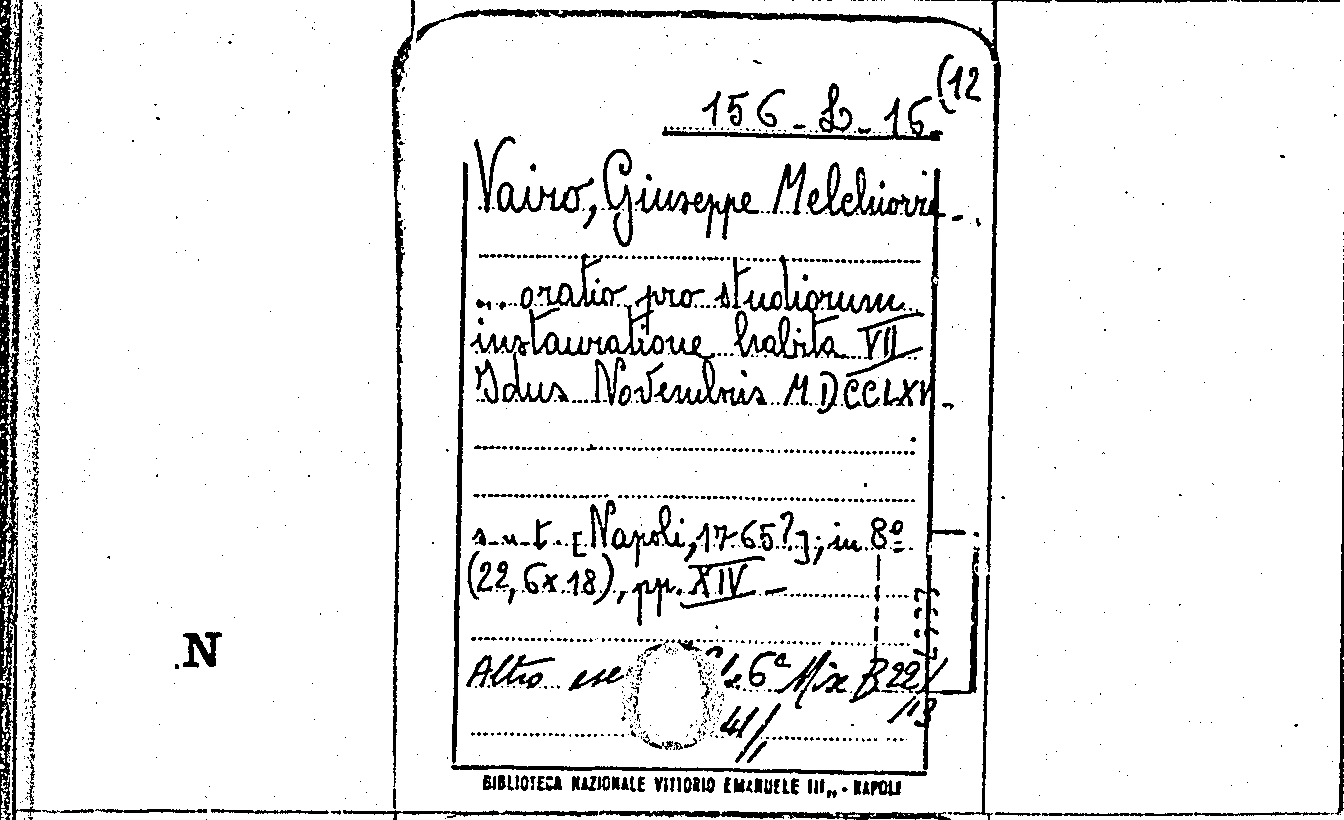 156-L-16(12
Vairo, Giuseppe Melchiorre.
... oratio pro studiorum
instauratione habita VII
Idus Novembris MDCCLXV.
s.n.t. [Napoli, 1765?]; in 8º
(22,6x18), pp. XIV
N
Altro 6ª Misc B 22/
/13
41/
BIBLIOTECA NAZIONALE VITTORIO EMANUELE III„ - NAPOLI